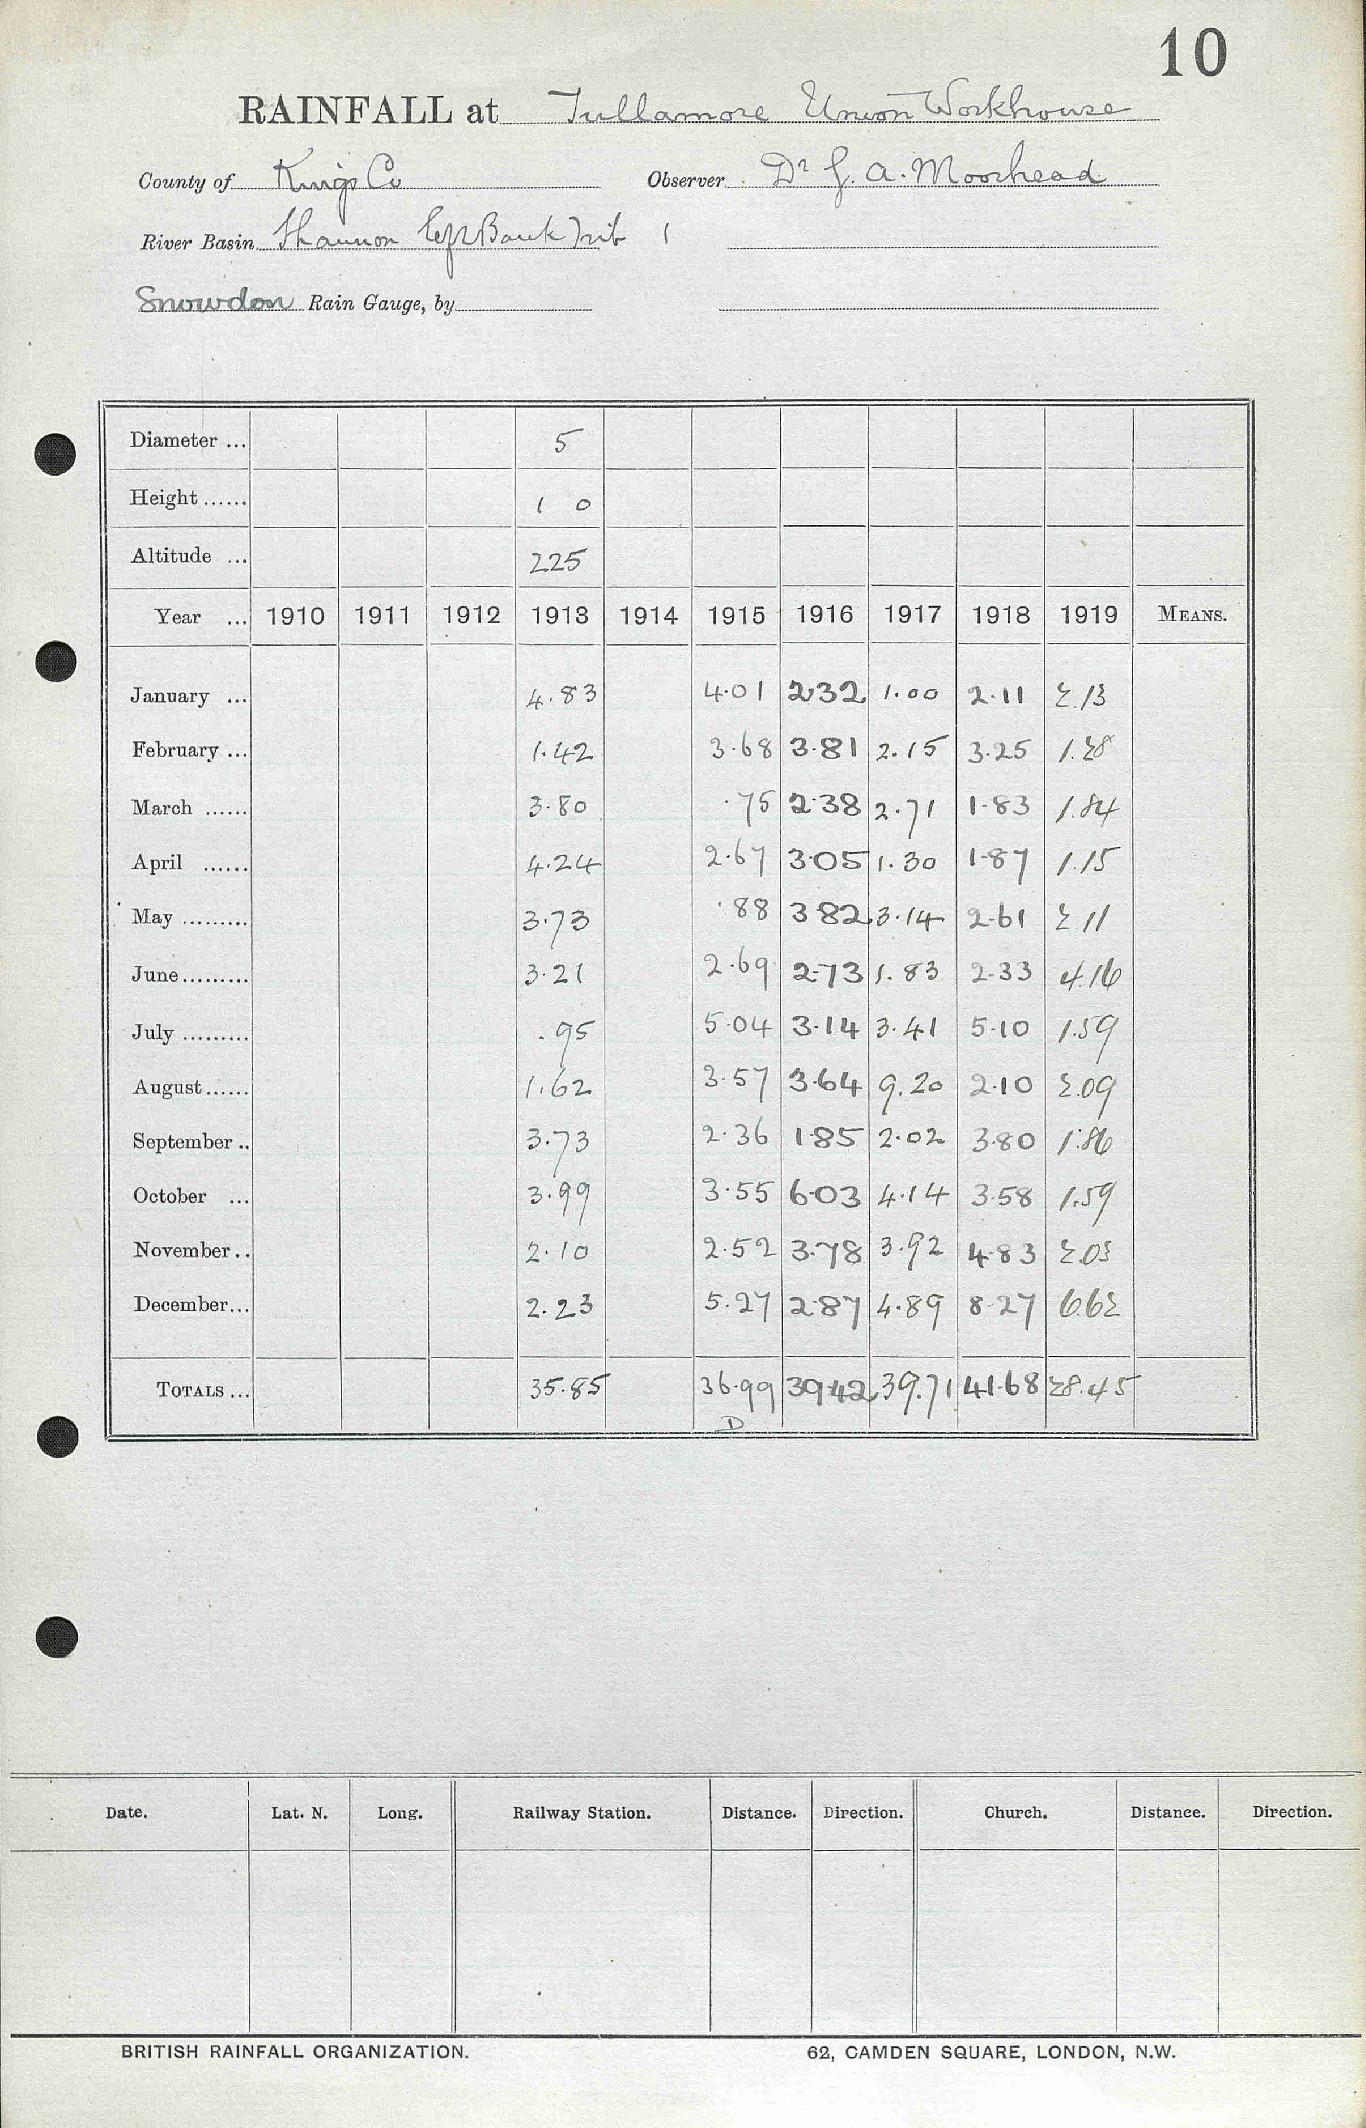 10
RAINFALL at Tullamore Union Workhouse
County of Kings Co Observer Dr G. A. Moorhead
River Basin Shannon Left Bank Trib 1
Snowdon Rain Gauge, by
Diameter ... 5
Height ...... 1 0
Altitude ... 225
Year ... 1910 1911 1912 1913 1914 1915 1916 1917 1918 1919 MEANS.
January ... 4.83 4.01 2.32 1.00 2.11 2.13
February ... 1.42 3.68 3.81 2.15 3.25 1.28
March ...... 3.80 .75 2.38 2.71 1.83 1.84
April ...... 4.24 2.67 3.05 1.30 1.87 1.15
May ......... 3.73 .88 3.82 3.14 2.61 2.11
June......... 3.21 2.69 2.73 1.83 2.33 4.16
July ......... .95 5.04 3.14 3.41 5.10 1.59
August...... 1.62 3.57 3.64 9.20 2.10 2.09
September .. 3.73 2.36 1.85 2.02 3.80 1.86
October ... 3.99 3.55 6.03 4.14 3.58 1.59
November .. 2.10 2.52 3.78 3.92 4.83 2.03
December... 2.23 5.27 2.87 4.89 8.27 6.62
TOTALS ... 35.85 36.99 39.42 39.71 41.68 28.45
D
Date. Lat. N. Long. Railway Station. Distance. Direction. Church. Distance. Direction.
BRITISH RAINFALL ORGANIZATION. 62, CAMDEN SQUARE, LONDON, N.W.